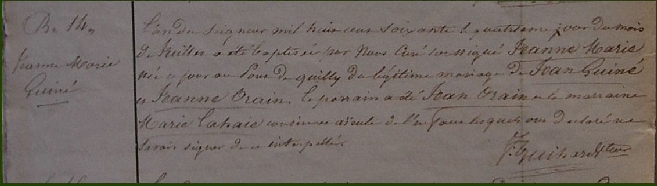 B. 14.
Jeanne Marie
Guiné
L'an du seigneur mil huit cent soixante le quatrième jour du mois
de Juillet a été baptisée par Nous Curé soussigné Jeanne Marie
née ce jour au de quilly du légitime mariage de Jean Guiné
et Jeanne Orain. le parrain a été Jean Orain et la marraine
Marie Lahaie lesquels ont déclaré ne
savoir signer de ce interpellés.